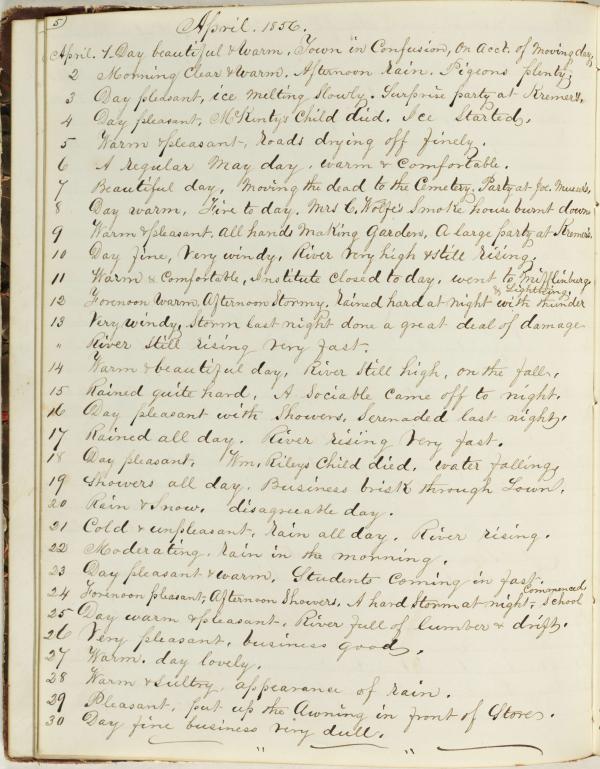 5)
April. 1856.
April. 1. Day beautiful & warm. Town in Confusion, on Acct. of moving day,
2 Morning Clear & warm. Afternoon rain. Pigeons plenty;
3 Day pleasant, ice melting slowly. Surprise party at Kremers,
4 Day pleasant, McKinty's Child died. Ice Started.
5 Warm & pleasant, roads drying off finely.
6 A regular May day. warm & Comfortable.
7 Beautiful day, Moving the dead to the Cemetery. Party at Joe.
8 Day warm, Fire to day. Mrs C. Wolfe's Smoke house burnt down
9 Warm & pleasant. All hands Making Garden, A large party at Kremers.
10 Day fine, Very windy, River Very high & still rising.
11 Warm & Comfortable, Institute closed to day, went to Mifflinburg,
& Lightning,
12 Forenoon warm, Afternoon Stormy. Rained hard at night with thunder
13 Very windy, Storm last night done a great deal of damage
" River still rising very fast.
14 Warm & beautiful day, River still high, on the fall,
15 Rained quite hard. A Sociable came off to night.
16 Day pleasant with Showers, Serenaded last night,
17 Rained all day. River rising Very fast.
18 Day pleasant, Wm. Rileys Child died. water falling,
19 Showers all day. Business brisk through Town.
20 Rain & Snow. disagreeable day.
21 Cold & unpleasant. rain all day. River rising.
22 Moderating. rain in the morning.
23 Day pleasant & warm. Students Coming in fast.
Commenced
24 Forenoon pleasant, Afternoon Showers. A hard Storm at night, School
25 Day warm & pleasant. River full of lumber & drift.
26 Very pleasant, business good.
27 Warm. day lovely.
28 Warm & sultry, appearance of rain.
29 Pleasant, put up the Awning in front of Store.
30 Day fine business very dull.
" "